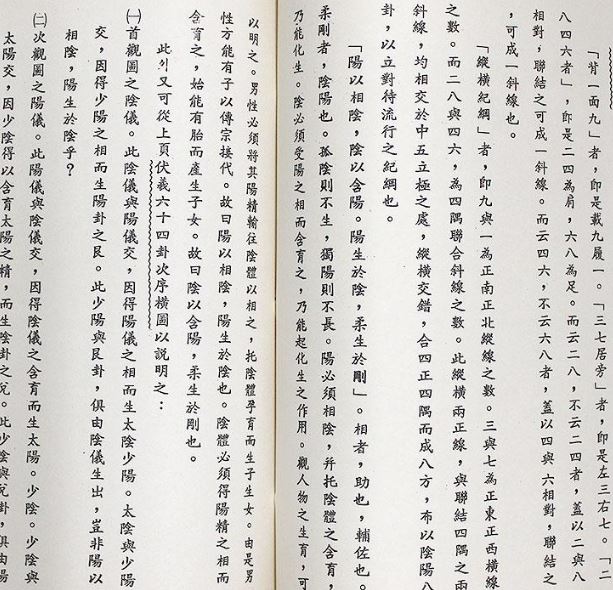 「背一面九」者，即是載九履一。「三七居旁」者，即是左三右七。「二
八四六者」，即是二四為肩，六八為足。而云二八，不云二四者，蓋以二與八
相對，聯結之可成一斜線。而云四六，不云六八者，蓋以四與六相對，聯結之
，可成一斜線也。
「縱橫紀綱」者，即九與一為正南正北縱線之數。三與七為正東正西橫線
之數。而二八與四六，為四隅聯合斜線之數。此縱橫兩正線，與聯結四隅之兩
斜線，均相交於中五立極之處，縱橫交錯，合四正四隅而成八方，布以陰陽八
卦，以立對待流行之紀綱也。
「陽以相陰，陰以含陽。陽生於陰，柔生於剛」。相者，助也，輔佐也。
柔剛者，陰陽也。孤陰則不生，獨陽則不長。陽必須相陰，并托陰體之含育，
乃能化生。陰必須受陽之相而含育之，乃能起化生之作用。觀人物之生育，可
以明之。男性必須將其陽精輸往陰體以相之，托陰體孕育而生子女。由是男
性方能有子以傳宗接代。故曰陽以相陰，陽生於陰也。陰體必須得陽精之相而
含育之，始能有胎而產生子女。故曰陰以含陽，柔生於剛也。
此外又可從上頁伏羲六十四卦次序橫圖以說明之：
㈠首觀圖之陰儀。此陰儀與陽儀交，因得陽儀之相而生太陰少陽。太陰與少陽
交，因得少陽之相而生陽卦之艮。此少陽與艮卦，俱由陰儀生出，豈非陽以
相陰，陽生於陰乎？
㈡次觀圖之陽儀。此陽儀與陰儀交，因得陰儀之含育而生太陽。少陰。少陰與
太陽交，因少陰得以含育太陽之精，而生陰卦之兌。此少陰與兌卦，俱由陽